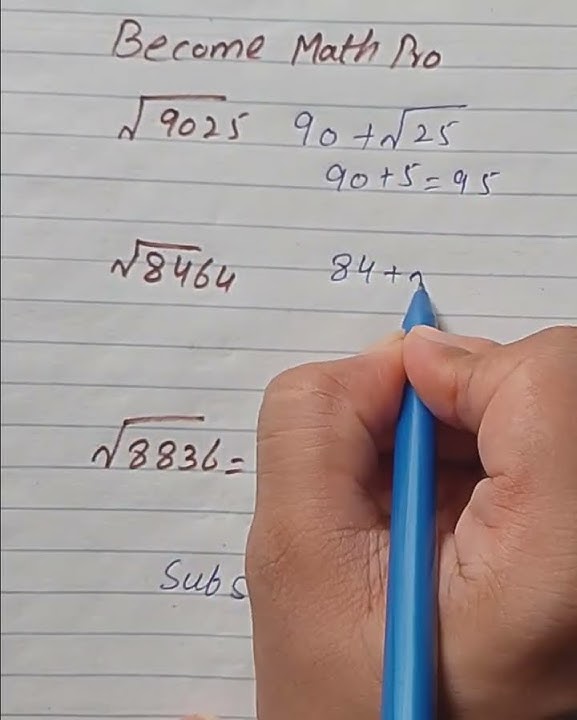 Become Math Pro
√9025 90+√25
90+5=95
√8464 84+
√8836=
Subs